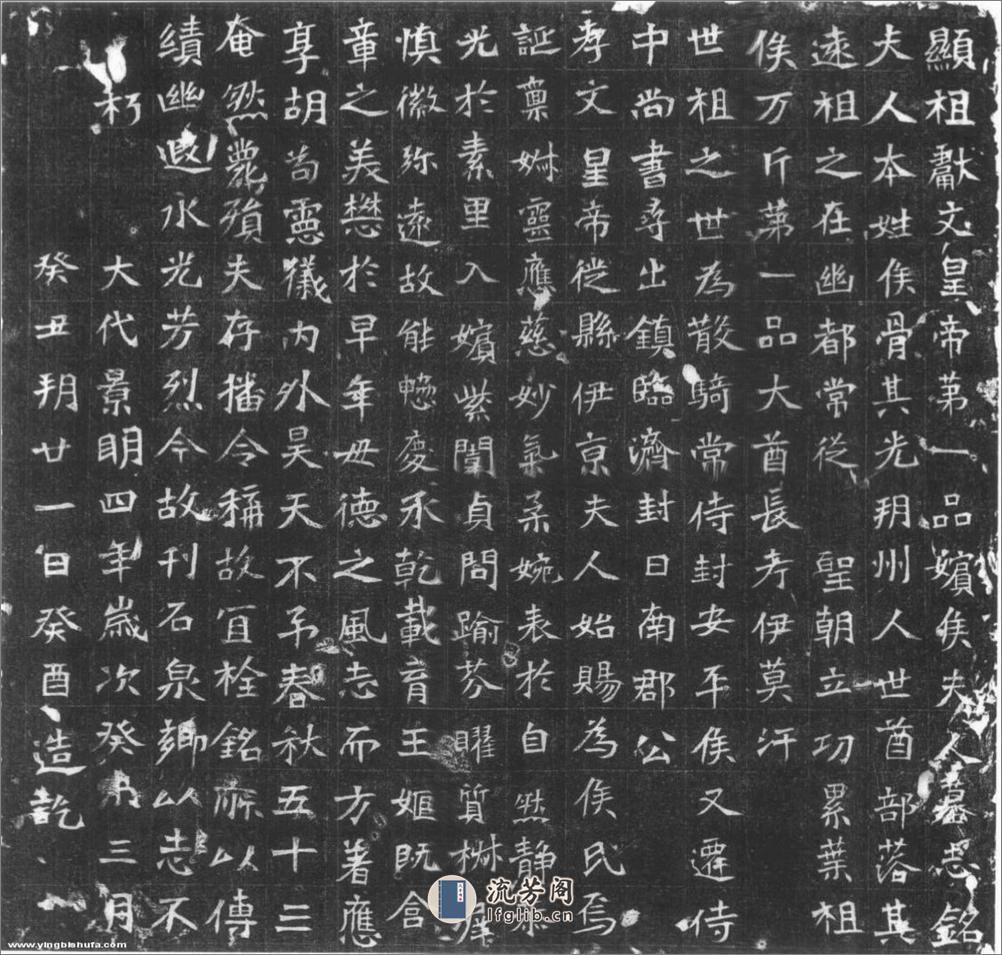 顯祖獻文皇帝第一品嬪侯夫人墓志銘
夫人本姓侯骨其先朔州人世酋部落其
遠祖之在幽都常從聖朝立功累葉祖
侯万斤第一品大酋長考伊莫汗
世祖之世為散騎常侍封安平侯又遷侍
中尚書尋出鎮臨濟封日南郡公
孝文皇帝從縣伊京夫人始賜為侯氏焉
誕稟姊靈應慈妙氣柔婉表於自然静恭
光於素里入嬪紫闈貞問踰芬曜質椒庭
慎徽弥遠故能戀慶承乾載育王姬既含
章之美懋於早年毋德之風志而方著應
享胡耇憲儀内外昊天不弔春秋五十三
奄然薨殞夫存播令稱故宜栓銘䣭以傳
績幽遐水光芳烈今故刊石泉鄉以志不
朽
大代景明四年歲次癸未三月
癸丑朔廿一日癸酉造訖
流芳阁
lfglib.cn
www.yingbishufa.com